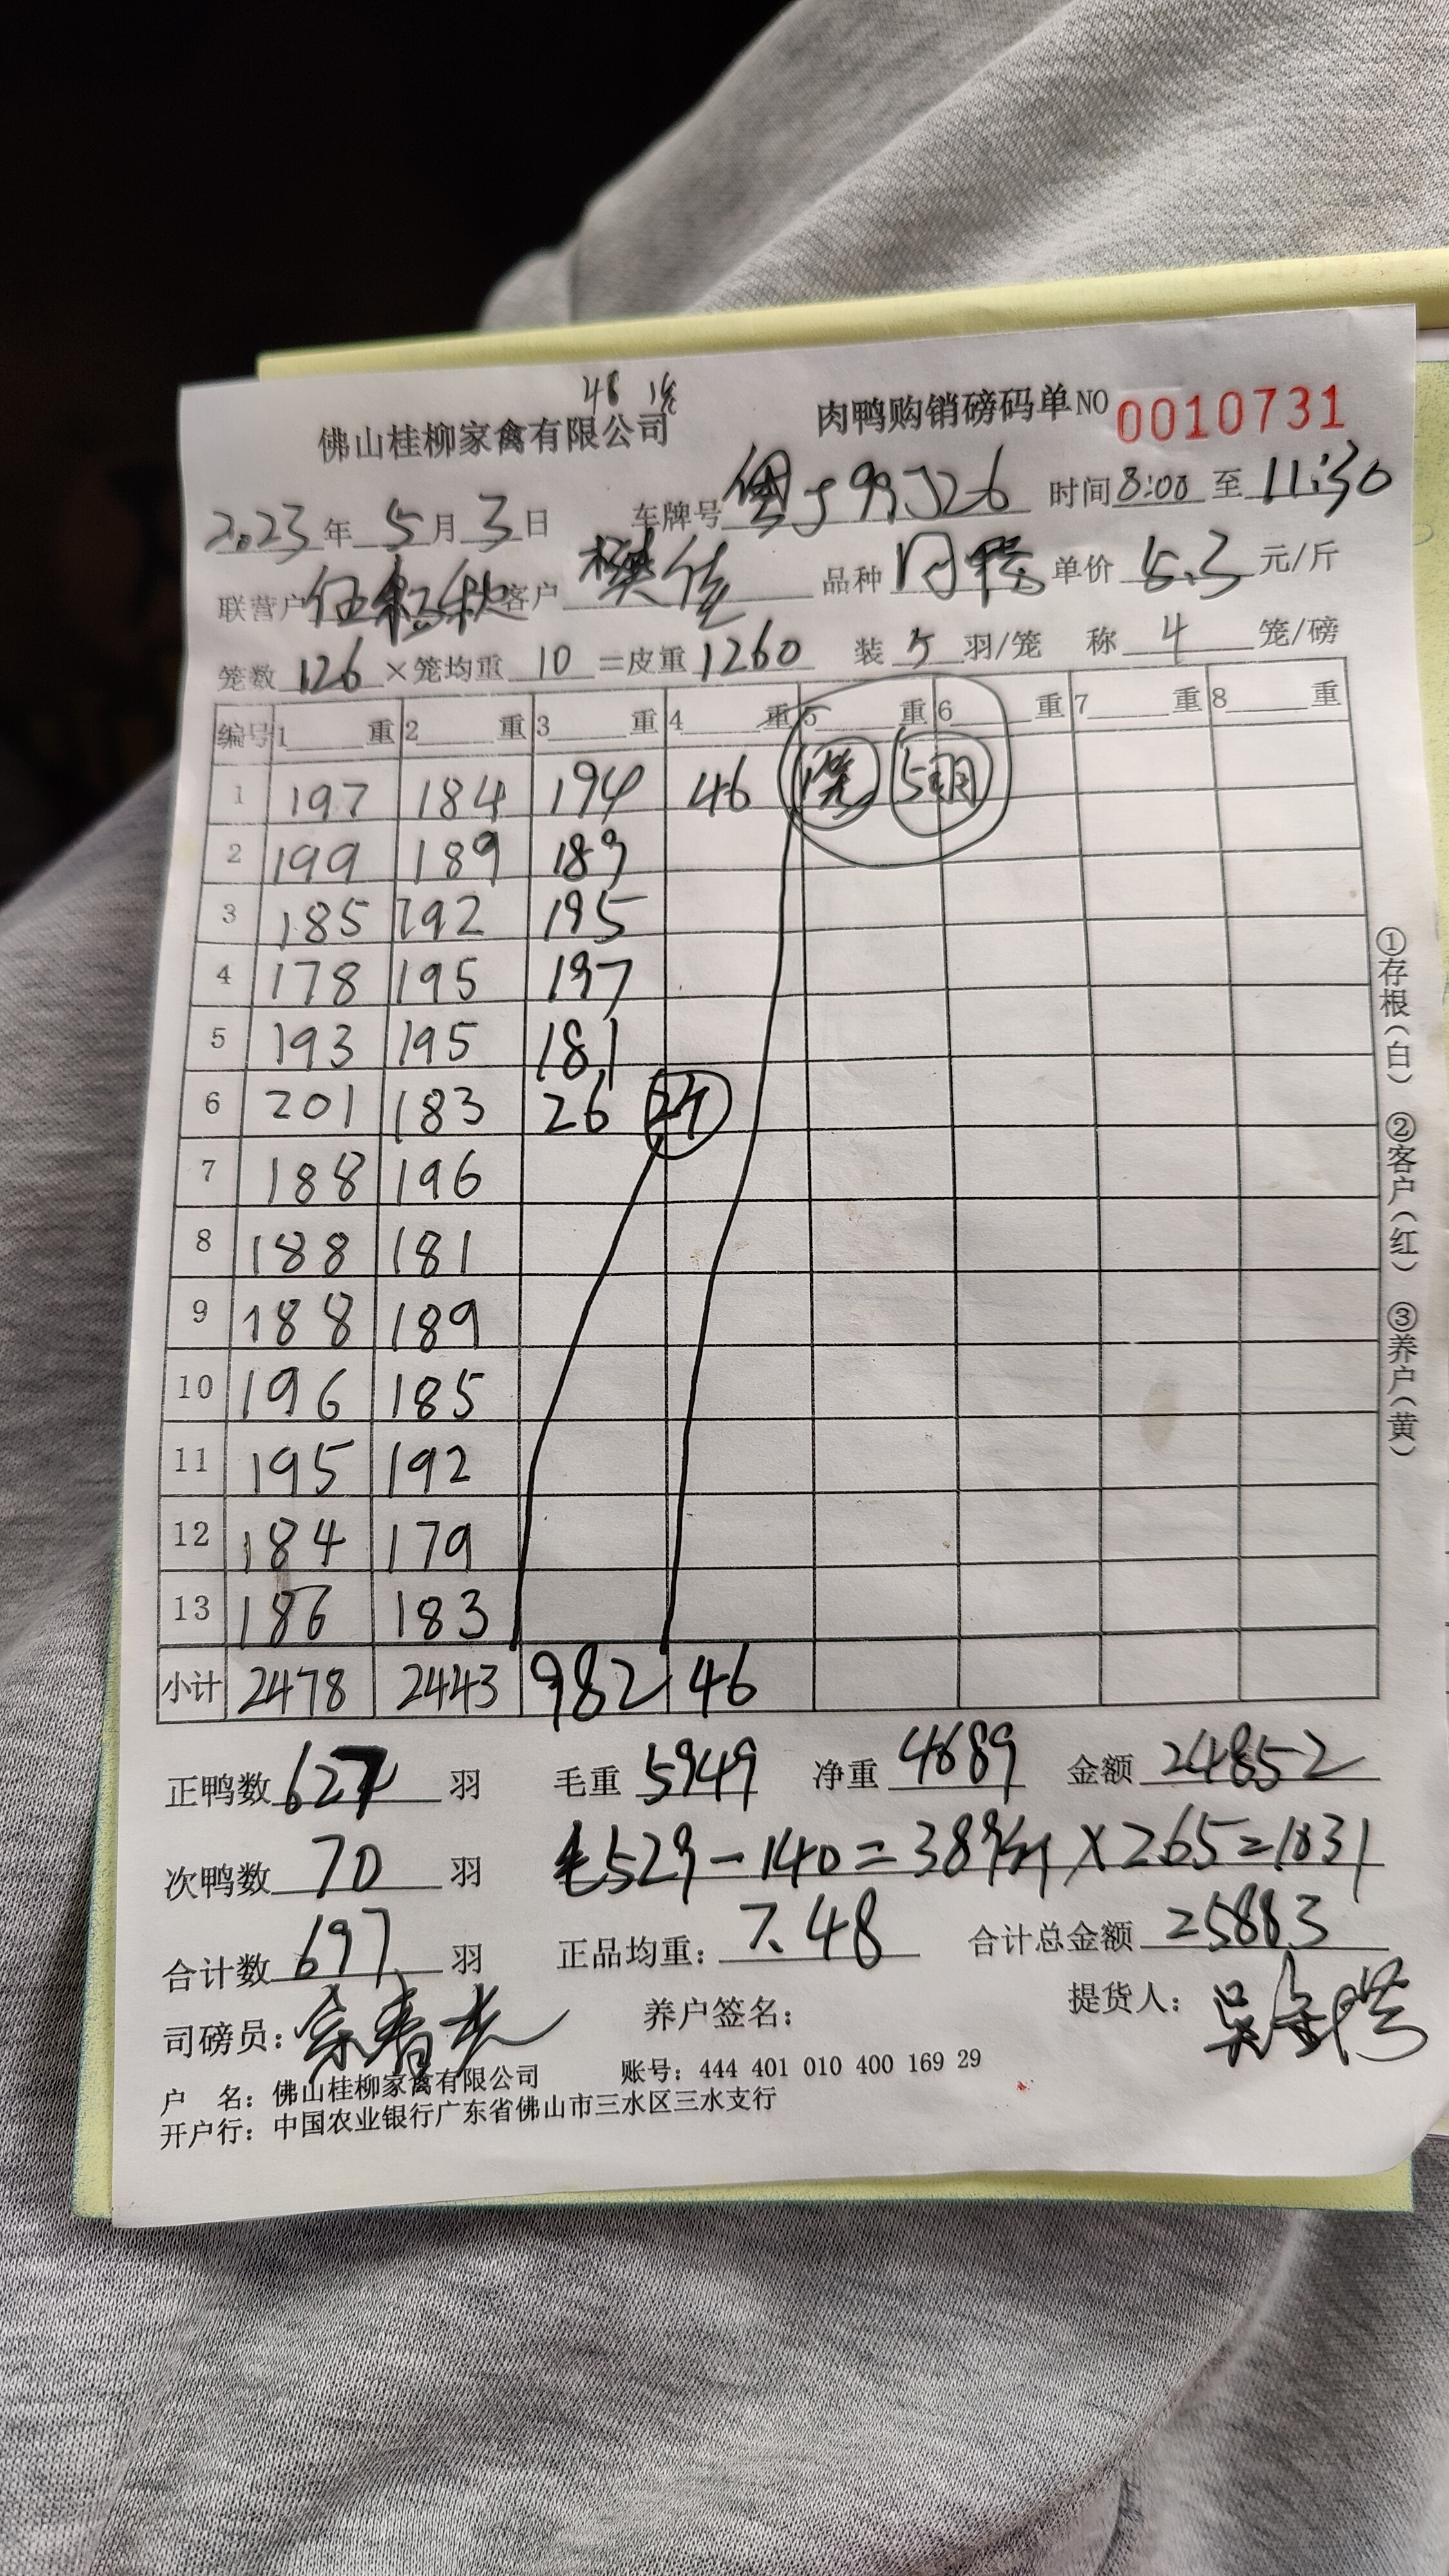 48 笼
佛山桂柳家禽有限公司 肉鸭购销磅码单 NO 0010731
2023年5月3日 车牌号 99J26 时间8:00至11:30
联营户 客户 樊佳 品种 单价 5.3 元/斤
笼数 126 ×笼均重 10 =皮重 1260 装 5 羽/笼 称 4 笼/磅
编号 1 重 2 重 3 重 4 重 5 重 6 重 7 重 8 重
1 197 184 194 46 1笼 5羽
2 199 189 189
3 185 192 195
4 178 195 197
5 193 195 181
6 201 183 26
7 188 196
8 188 181
9 188 189
10 196 185
11 195 192
12 184 179
13 186 183
小计 2478 2443 982 46
正鸭数 627 羽 毛重 5949 净重 4689 金额 24852
次鸭数 70 羽 毛529-140=389斤×265=1031
合计数 697 羽 正品均重: 7.48 合计总金额 25883
司磅员: 养户签名: 提货人:
户 名: 佛山桂柳家禽有限公司 账号: 444 401 010 400 169 29
开户行: 中国农业银行广东省佛山市三水区三水支行
①存根(白) ②客户(红) ③养户(黄)